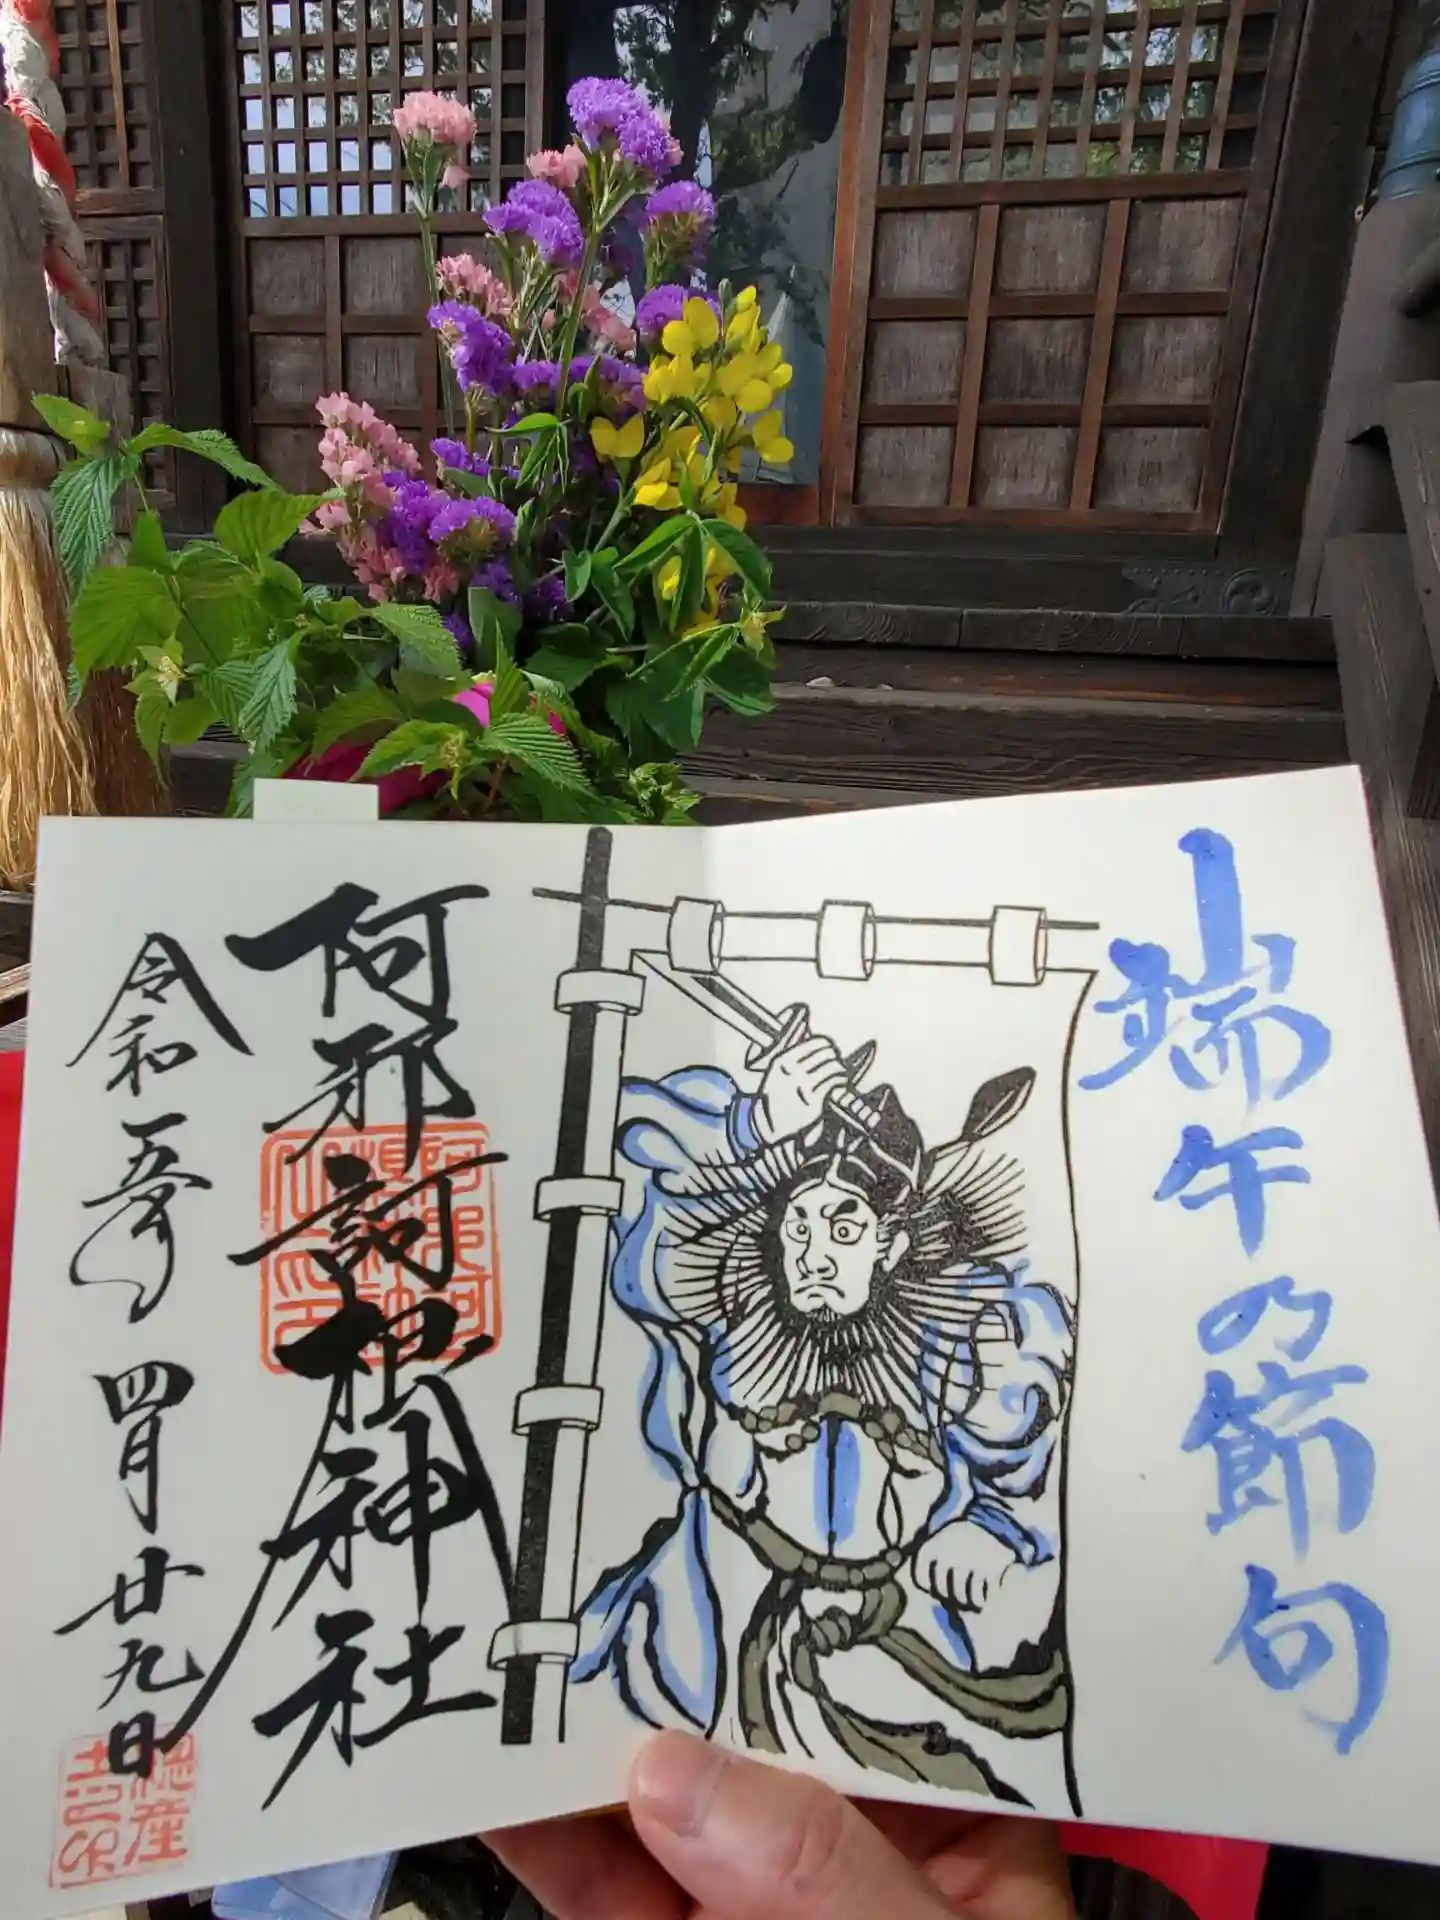 端午の節句
阿邪訶根神社
令和五年
四月廿九日